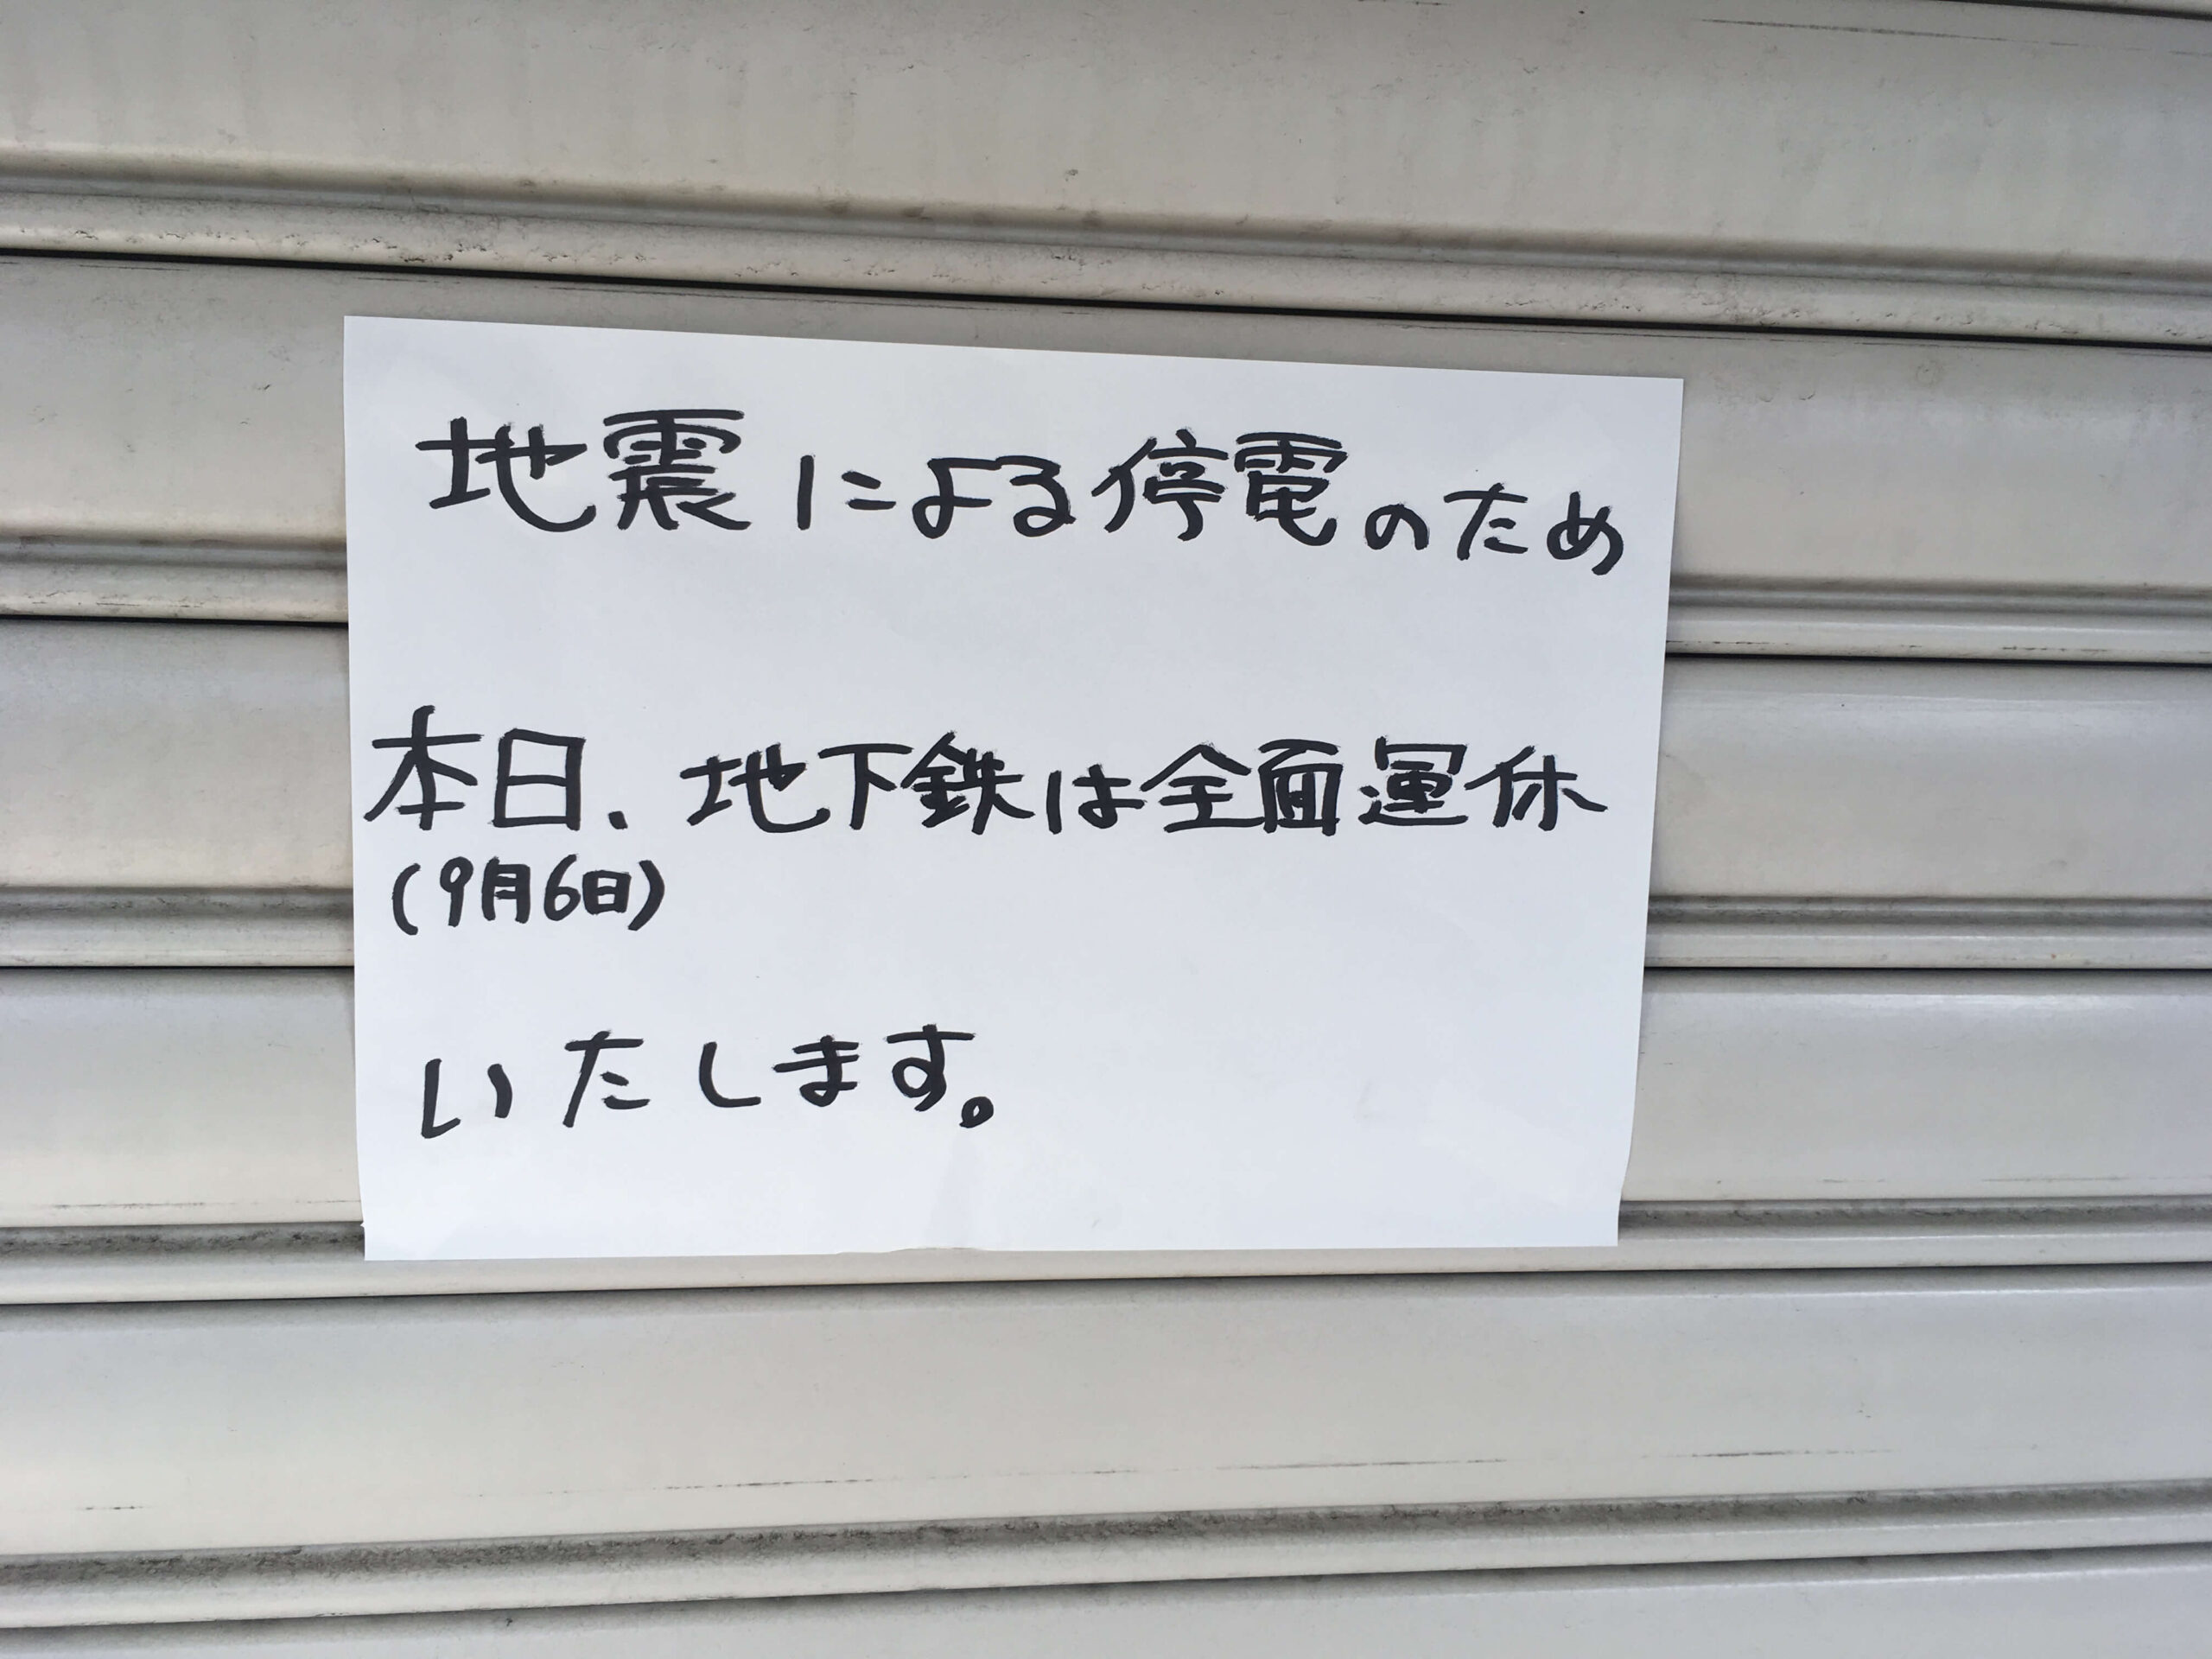 地震による停電のため
本日、地下鉄は全面運休
(9月6日)
いたします。